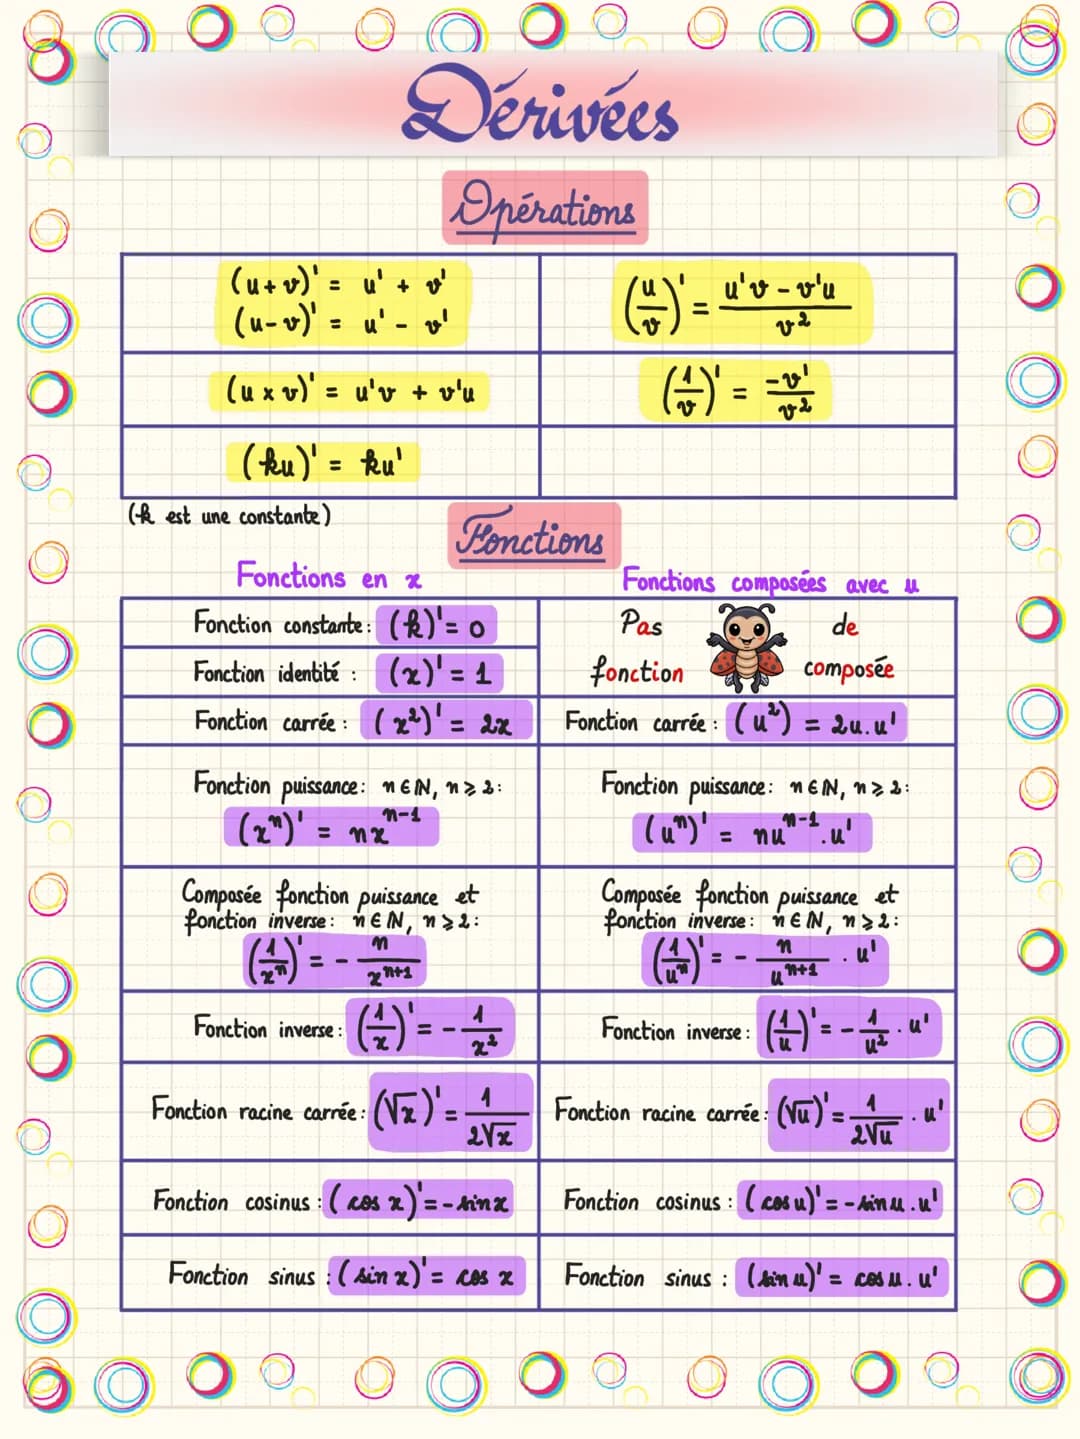 Dérivées
Opérations
(u + v)' = u' + v'
(u - v)' = u' - v'
(u/v)' = (u'v - v'u)/v²
(u × v)' = u'v + v'u
(1/v)' = -v'/v²
(ku)' = ku'
(k est une constante)
Fonctions
Fonctions en x
Fonctions composées avec u
Fonction constante : (k)' = 0
Fonction identité : (x)' = 1
Pas de
fonction composée
Fonction carrée : (x²)' = 2x
Fonction carrée : (u²) = 2u.u'
Fonction puissance : n ∈ ℕ, n ⩾ 2 :
(xⁿ)' = nxⁿ⁻¹
Fonction puissance : n ∈ ℕ, n ⩾ 2 :
(uⁿ)' = nuⁿ⁻¹.u'
Composée fonction puissance et
fonction inverse : n ∈ ℕ, n ⩾ 2 :
(1/xⁿ)' = - n/xⁿ⁺¹
Composée fonction puissance et
fonction inverse : n ∈ ℕ, n ⩾ 2 :
(1/uⁿ)' = - n/uⁿ⁺¹ . u'
Fonction inverse : (1/x)' = - 1/x²
Fonction inverse : (1/u)' = - 1/u² . u'
Fonction racine carrée : (√x)' = 1/2√x
Fonction racine carrée : (√u)' = 1/2√u . u'
Fonction cosinus : (cos x)' = - sin x
Fonction cosinus : (cos u)' = - sin u . u'
Fonction sinus : (sin x)' = cos x
Fonction sinus : (sin u)' = cos u . u'